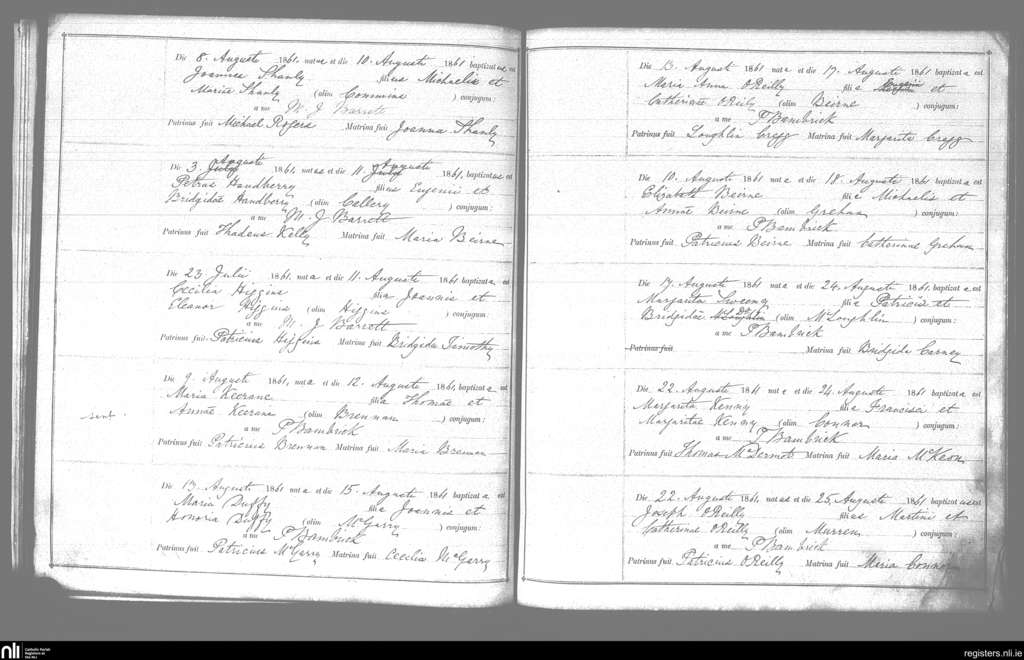 Die 8. Augusti 1861, natus et die 10. Augusti 1861 baptizatus est
Joannes Shanly filius Michaelis et
Mariæ Shanly (olim Commins) conjugum:
a me M. J. Barrett
Patrinus fuit Michael Rogers Matrina fuit Joanna Shanly
Die 3. July Augusti 1861, natus et die 11. July Augusti 1861, baptizatus est
Petrus Handberry filius Eugenii et
Bridgidæ Handberry (olim Cellery) conjugum:
a me M. J. Barrett
Patrinus fuit Thadeus Kelly Matrina fuit Maria Beirne
Die 23 Julii 1861, nata et die 11. Augusti 1861 baptizata est
Cecilia Higgins filia Joannis et
Eleanor Higgins (olim Higgins) conjugum:
a me M. J. Barrett
Patrinus fuit Patricius Higgins Matrina fuit Bridgida Timothy
Die 9. Augusti 1861, nata et die 12. Augusti 1861, baptizata est
Maria Keerane filia Thomæ et
sent.
Annæ Keerane (olim Brennan) conjugum:
a me P Bambrick
Patrinus fuit Patricius Brennan Matrina fuit Maria Brennan
Die 13. Augusti 1861 nata et die 15. Augusti 1861 baptizata est
Maria Duffy filia Joannis et
Honoria Duffy (olim McGarry) conjugum:
a me P Bambrick
Patrinus fuit Patricius McGarry Matrina fuit Cecilia McGarry
Die 13. Augusti 1861 nata et die 17. Augusti 1861 baptizata est
Maria Anna OReilly filia et
Catherinæ OReily (olim Beirne) conjugum:
a me P Bambrick
Patrinus fuit Loughlin Cregg Matrina fuit Margarita Cregg
Die 10. Augusti 1861 nata et die 18. Augusti 1861 baptizata est
Elizabeth Beirne filia Michaelis et
Annæ Beirne (olim Grehan) conjugum:
a me P Bambrick
Patrinus fuit Patricius Beirne Matrina fuit Catherina Grehan
Die 17. Augusti 1861 nata et die 24. Augusti 1861, baptizata est
Margarita Sweeny filia Patricii et
Bridgidæ McLoughlin (olim McLoughlin) conjugum:
a me P Bambrick
Patrinus fuit Matrina fuit Bridgida Carney
Die 22. Augusti 1861 nata et die 24. Augusti 1861 baptizata est
Margarita Kenny filia Francisci et
Margaritæ Kenny (olim Connor) conjugum:
a me P Bambrick
Patrinus fuit Thomas McDermot Matrina fuit Maria McKeon
Die 22. Augusti 1861, natus et die 25. Augusti 1861 baptizatus est
Joseph OReilly filius Martini et
Catherinæ OReilly (olim Murren) conjugum:
a me P Bambrick
Patrinus fuit Patricius OReilly Matrina fuit Maria Connor
nli Catholic Parish
Registers at
the NLI
registers.nli.ie